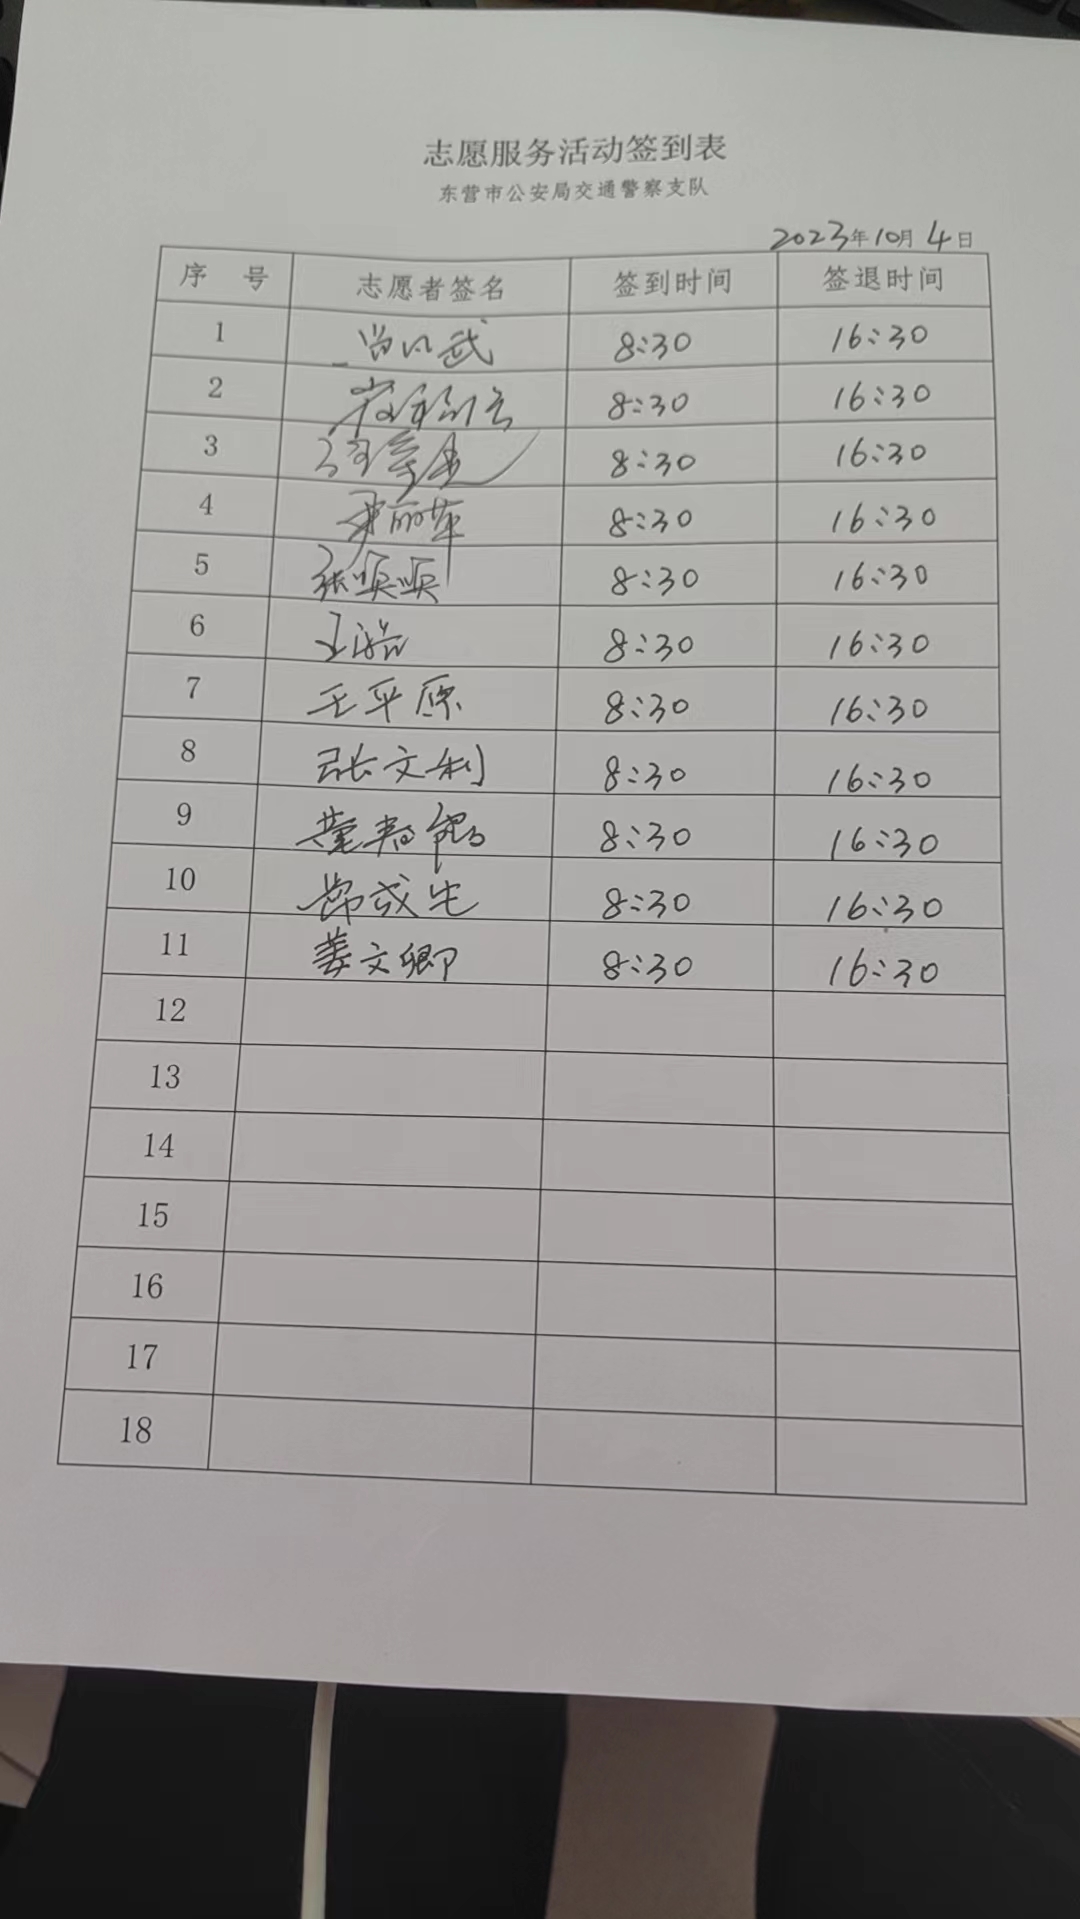 志愿服务活动签到表
东营市公安局交通警察支队
2023年10月4日
序 号 志愿者签名 签到时间 签退时间
1 8:30 16:30
2 8:30 16:30
3 8:30 16:30
4 尹丽萍 8:30 16:30
5 张顺顺 8:30 16:30
6 王浩 8:30 16:30
7 王平原 8:30 16:30
8 张文利 8:30 16:30
9 董春鹤 8:30 16:30
10 8:30 16:30
11 姜文卿 8:30 16:30
12
13
14
15
16
17
18